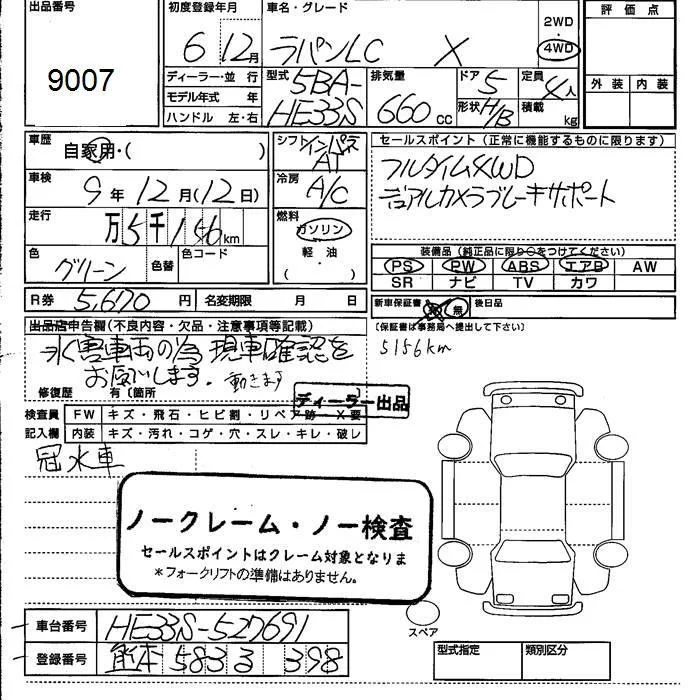 出品番号
9007
初度登録年月
6 12月
車名・グレード
ラパンLC X
2WD
・
4WD
評価点
外装 内装
ディーラー・並行
モデル年式 年
ハンドル 左・右
型式
5BA-
HE33S
排気量
660 cc
ドア 5
形状 H/B
定員 4人
積載 kg
車歴
自家用・( )
車検
9年12月(12日)
走行
万5千156km
色
グリーン
色替
色コード
シフト インパネ
AT
冷房
A/C
燃料
ガソリン
軽油
( ・ )
セールスポイント(正常に機能するものに限ります)
フルタイム4WD
デュアルカメラブレーキサポート
装備品(純正品に限り○をつけてください)
PS PW ABS エアB AW
SR ナビ TV カワ
R券 5,670円 名変期限 月 日
新車保証書 有・無 後日品
(保証書は事務局へ提出して下さい)
5156km
出品店申告欄(不良内容・欠品・注意事項等記載)
水害車両の為現車確認を
お願いします。動きます
修復歴 有(箇所 )
ディーラー出品
検査員 FW キズ・飛石・ヒビ割・リペア跡・X要
記入欄 内装 キズ・汚れ・コゲ・穴・スレ・キレ・破レ
冠水車
ノークレーム・ノー検査
セールスポイントはクレーム対象となりま
*フォークリフトの準備はありません。
スペア
車台番号 HE33S-527691
登録番号 熊本 583 る 398
型式指定 類別区分